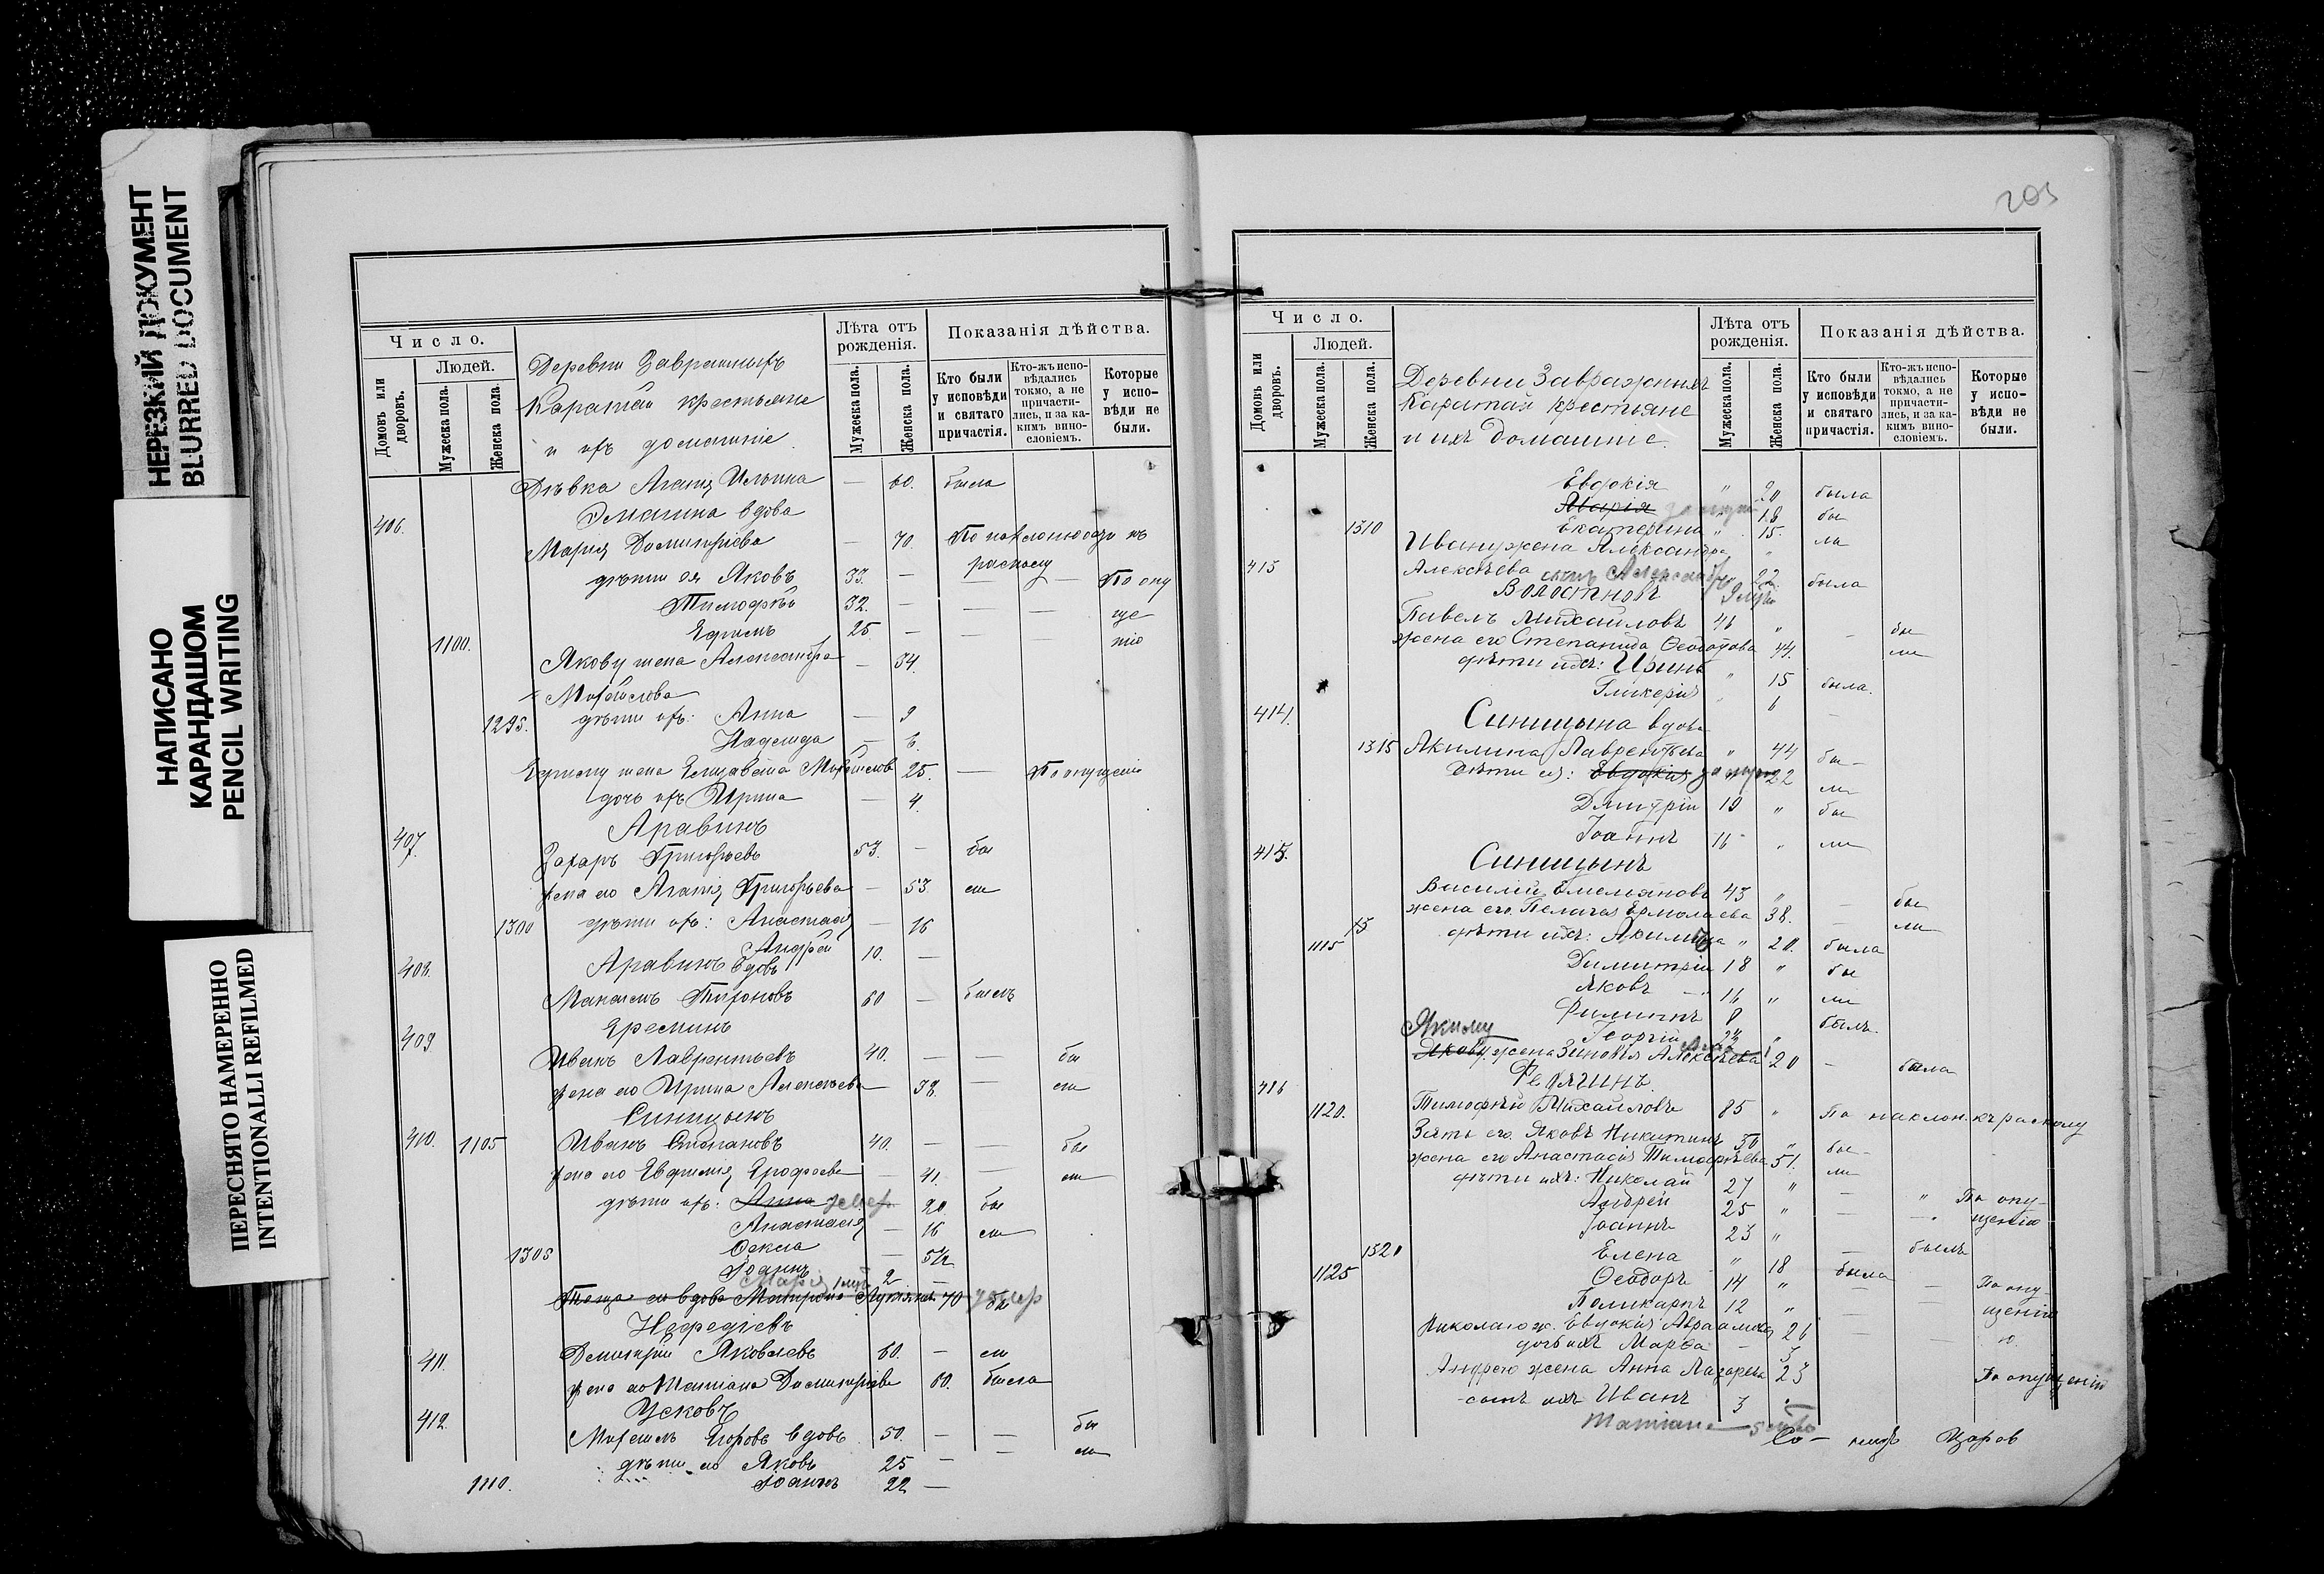 НЕРЕЗКИЙ ДОКУМЕНТ
BLURRED DOCUMENT
НАПИСАНО
КАРАНДАШОМ
PENCIL WRITING
ПЕРЕСНЯТО НАМЕРЕННО
INTENTIONALLI REFILMED
Число.
Домовъ или дворовъ.
Людей.
Мужеска пола.
Женска пола.
Деревни Завражныхъ
Каратай крестьяне
и ихъ домашніе.
Лѣта отъ рожденія.
Мужеска пола.
Женска пола.
Показанія дѣйства.
Кто были у исповѣди и святаго причастія.
Кто-жъ исповѣдались токмо, а не причастились, и за какимъ винословіемъ.
Которые у исповѣди не были.
Дѣвка Агапія Ильина — 60. была
406. вдова
Марія Димитріева — 70. По наклоненію къ
расколу
дѣти ея Яковъ 33. — — — По опу
Тимофѣй 32. — — — ще
1100. Ефимъ 25. — — — нію
Якову жена Александра — 34.
1295. дѣти ихъ: Анна — 9
Надежда — 6.
Ефиму жена Елизавета 25. — По опущенію
дочь ихъ Ирина — 4.
407. Аравинъ
Захаръ Григорьевъ 53. — бы
жена его Агапія Григорьева — 53. ли
1300 дѣти ихъ: Анастасія — 16
Андрей 10. —
408. Аравинъ вдовъ
Максимъ 60 — былъ
409 Ереминъ
Иванъ Лаврентьевъ 40. — — бы
жена его Ирина Алексѣева — 38. — ли
Синицынъ
410. 1105 Иванъ Степановъ 40. — — бы
жена его Евфимія Ерофеева — 41. — ли
дѣти ихъ: Анна 20. бы
Анастасія — 16 ли
1305 Ѳекла — 5½
Іоаннъ 2
Марія
Теща его вдова Матрона 70 умер
Нефедьевъ
411. Димитрій Яковлевъ 60. — ли
жена его Татіана Димитріева 60. была
Усковъ
412. Егоровъ вдовъ 50. — — бы
дѣти его Яковъ 25 — — ли
1110. Іоаннъ 22 —
203
Число.
Домовъ или дворовъ.
Людей.
Мужеска пола.
Женска пола.
Деревни Завражныхъ
Каратай крестьяне
и ихъ домашніе.
Лѣта отъ рожденія.
Мужеска пола.
Женска пола.
Показанія дѣйства.
Кто были у исповѣди и святаго причастія.
Кто-жъ исповѣдались токмо, а не причастились, и за какимъ винословіемъ.
Которые у исповѣди не были.
Евдокія " 20 была
Марія замуж 18 бы
1310 Екатерина " 15. ли
Ивану жена Александра "
415 Алексѣева сынъ Александръ 22. была
Волостновъ
Павелъ Михайловъ 46 " — бы
жена его Степанида Ѳедотова 44. ли
дѣти ихъ: Ирина " 15 была.
Гликерія " 6 —
414. Синицына вдова
1315 Акилина Лаврентьева " 44 бы-
Дѣти ея: Евдокія замуж 22 ли
Димитрій 19 " бы
Іоаннъ 16 " ли
415. Синицынъ
Василій Емельяновъ 43 " — бы
жена его Пелагея Ермолаева 38. — ли
1115 15 дѣти ихъ: " 20. была
Димитрій 18 " бы
Яковъ — 16 " ли
Филиппъ 8 былъ.
Якиму Георгій "
Якову жена Зиновія Алексѣева 20 — была
416 Редягинъ.
1120. Тимофѣй Михайловъ 85 " По наклон. къ расколу
Зять его Яковъ Никитинъ 50 " бы-
жена его Анастасія Тимофѣева 51. ли
дѣти ихъ: Николай 27 " — " По опу-
Андрей 25 " — — щенію
Іоаннъ 23 " — былъ
1320 Елена " 18 была
1125 Ѳеодоръ 14 " — — По опу-
Поликарпъ 12 " — — щенію
Николаю ж. Евдокія 26 — — ю.
дочь ихъ Марѳа — 3
Андрею жена Анна Лазарева 23 По опущенію
сынъ ихъ Иванъ 3 "
Татіана